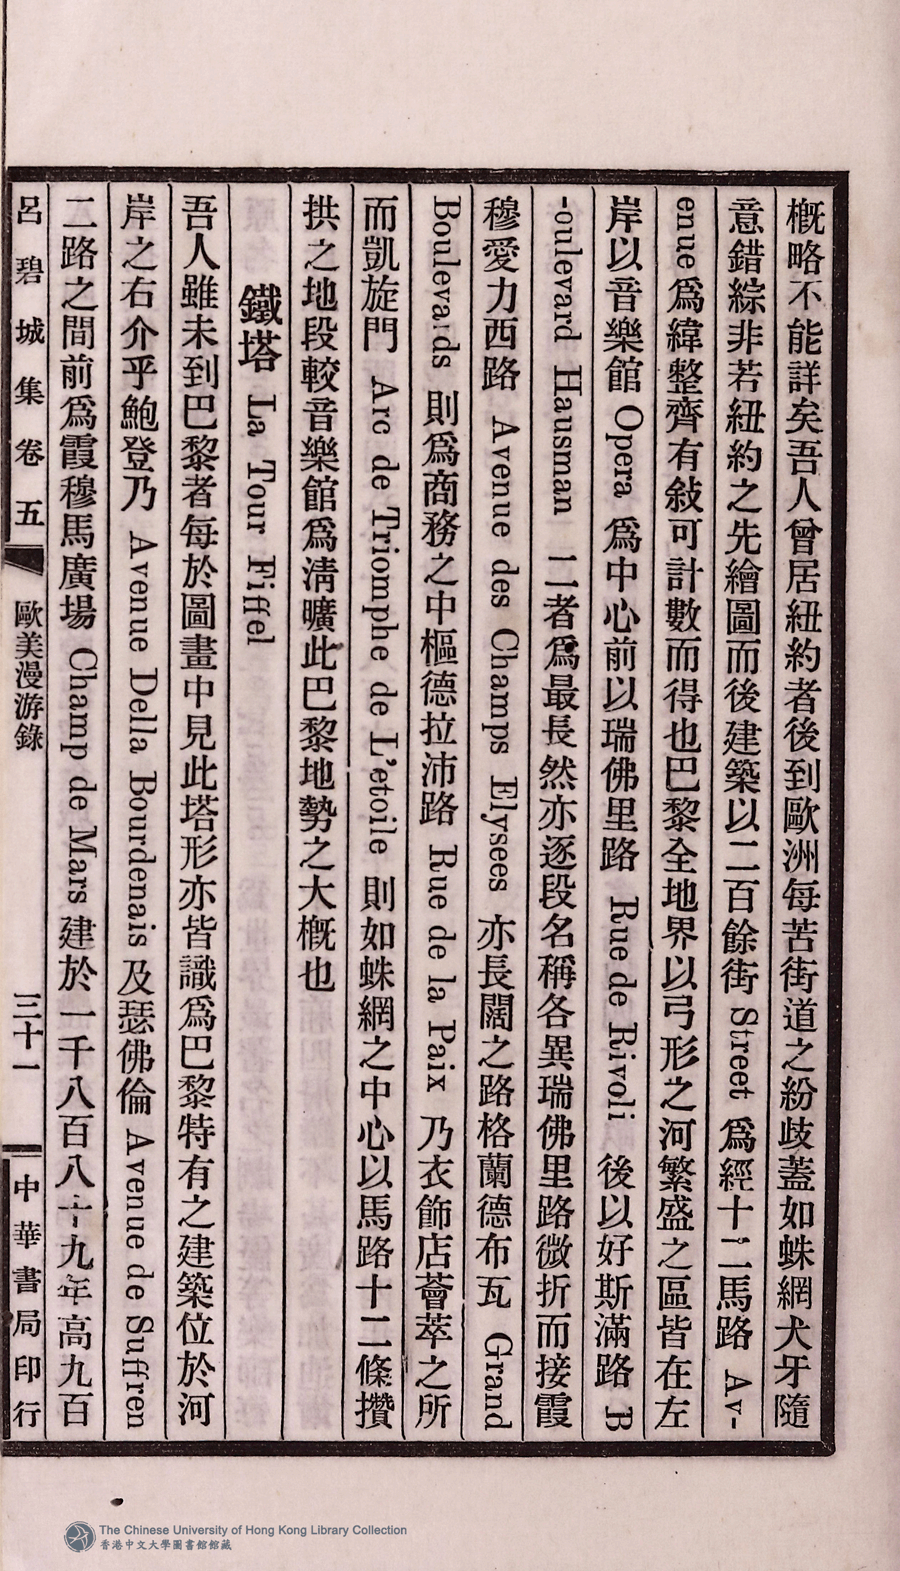 概略不能詳矣吾人曾居紐約者後到歐洲每苦街道之紛歧蓋如蛛網犬牙隨
意錯綜非若紐約之先繪圖而後建築以二百餘街 Street 爲經十二馬路 Av-
enue 爲緯整齊有敍可計數而得也巴黎全地界以弓形之河繁盛之區皆在左
岸以音樂館 Opera 爲中心前以瑞佛里路 Rue de Rivoli 後以好斯滿路 B
-oulevard Hausman 二者爲最長然亦逐段名稱各異瑞佛里路微折而接霞
穆愛力西路 Avenue des Champs Elysees 亦長闊之路格蘭德布瓦 Grand
Boulevards 則爲商務之中樞德拉沛路 Rue de la Paix 乃衣飾店薈萃之所
而凱旋門 Arc de Triomphe de L'etoile 則如蛛網之中心以馬路十二條攢
拱之地段較音樂館爲淸曠此巴黎地勢之大概也
鐵塔 La Tour Fiffel
吾人雖未到巴黎者每於圖畫中見此塔形亦皆識爲巴黎特有之建築位於河
岸之右介乎鮑登乃 Avenue Della Bourdenais 及瑟佛倫 Avenue de Suffren
二路之間前爲霞穆馬廣場 Champ de Mars 建於一千八百八十九年高九百
呂碧城集卷五 歐美漫游錄 三十一 中華書局印行
The Chinese University of Hong Kong Library Collection
香港中文大學圖書館館藏